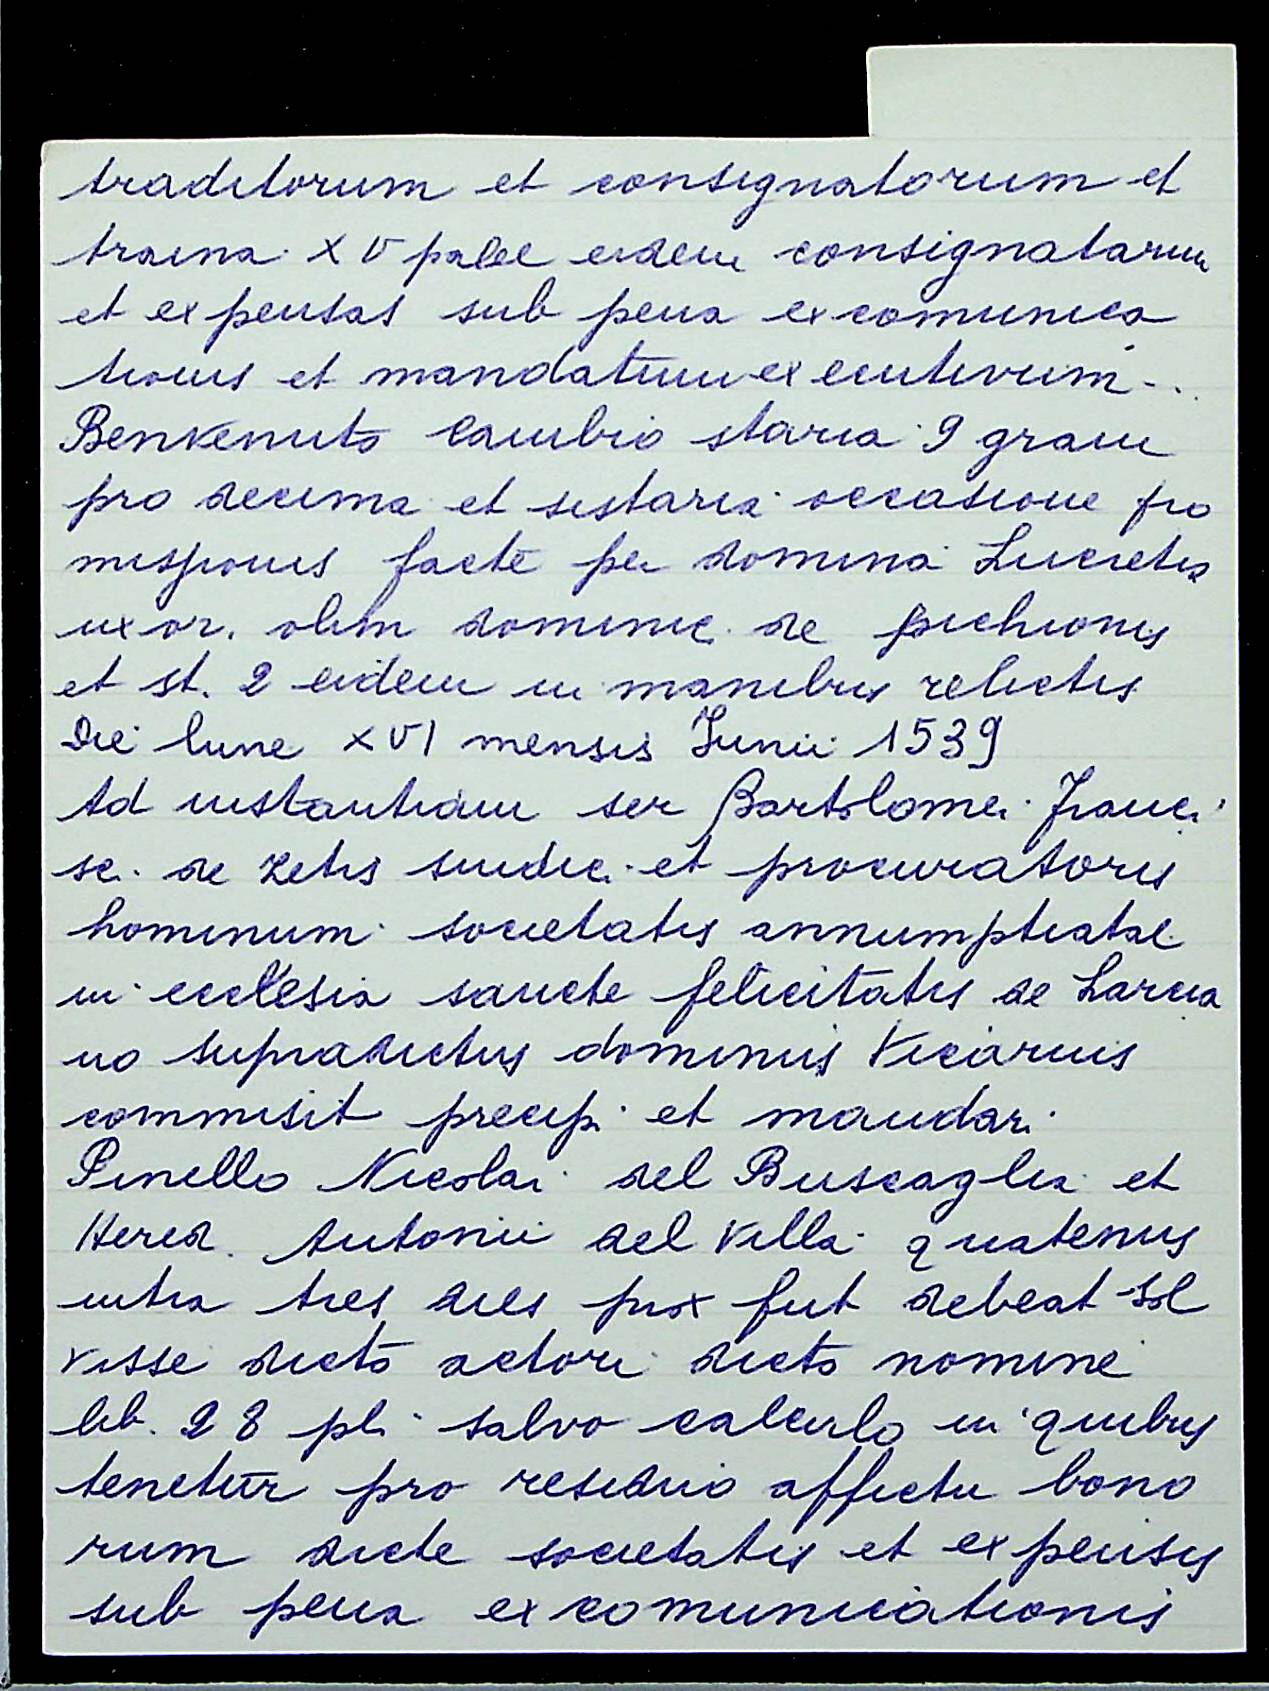 traditorum et consignatorum et
traina XV palee eidem consignatarum
et expensas sub pena excomunica
tionis et mandatum executivum..
Benvenuto Cambio staria 9 grani
pro decima et sistaria occasione pro
missionis facte per domina Lucretia
uxor. olim dominic. de pichionis
et st. 2 eidem in manibus relictis
Die lune XVI mensis Junii 1539
Ad instantiam ser Bartolomei Franci
sci de Zetis sindici et procuratoris
hominum societatis annumptiatae
in ecclesia sancte felicitatis de Larcia
no supradictus dominus Vicarius
commisit precipi et mandari
Pinello Nicolai del Buscaglia et
Hered. Antonii del Villa quatenus
intra tres dies prox fut debeat sol
visse dicto actori dicto nomine
lib. 28 pli salvo calculo in quibus
tenetur pro residuo affictu bono
rum dicte societatis et expensis
sub pena excomunicationis